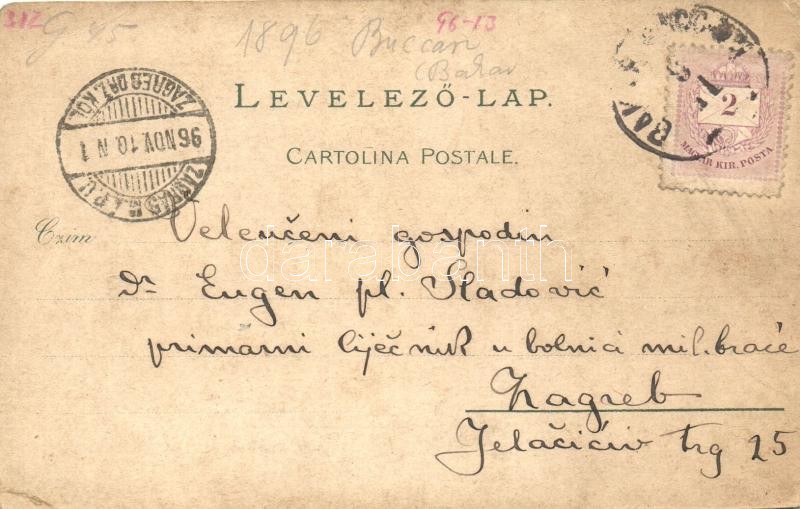 312
G 45
1896 Buccari
96-13
(Bakar
LEVELEZŐ-LAP.
CARTOLINA POSTALE.
ZÁGRÁB M.
96 NOV. 10. N 1
2
MAGYAR KIR. POSTA
Czím
Veleučeni gospodin
Dr Eugen pl. Sladović
primarni liječnik u bolnici mil. braće
Zagreb
Jelačićiv trg 25
darabanth